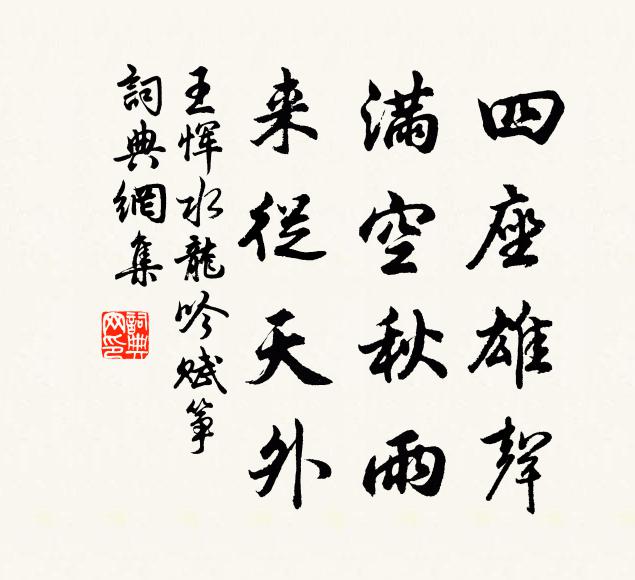 四座雄聲
满空秋雨
来從天外
王惲水龍吟賦箏
詞典網集
詞典网印